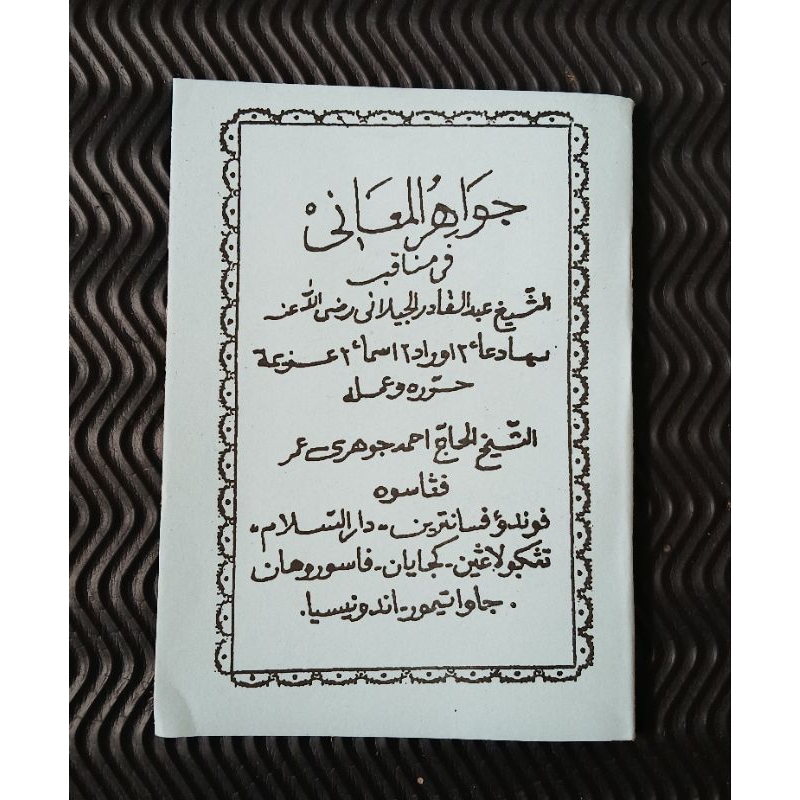 جَوَاهِرُ المَعَانِى
فى مناقب
الشّيخ عبد القادر الجيلانى رضى اللّٰه عنه
بهادعاء٢ اوراد٢ اسماء٢ عزيمة
حزره وعمله
الشّيخ الحاج احمد جوهرى عمر
ڤڠاسوه
ڤوندؤ ڤسانترين - دار السّلام -
تڠݢولاڠين - كجايان - ڤاسوروهان
. جاوا تيمور - اندونيسيا .